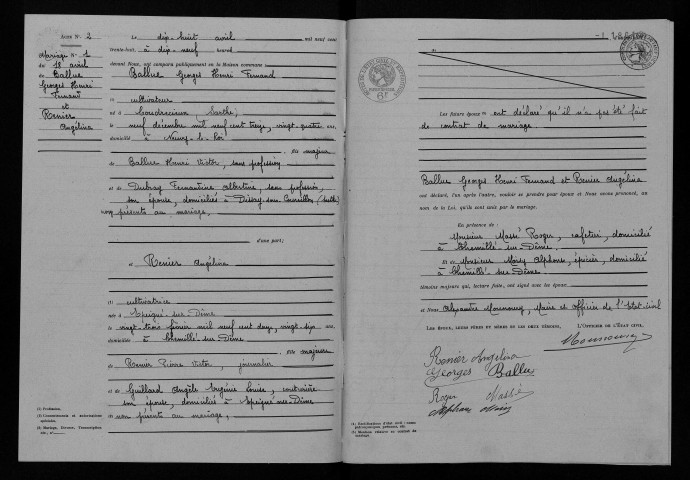 Acte No 2
Mariage No 1
du 18 avril
de Ballue
Georges Henri
Fernand
et
Renier
Angélina
Le dix-huit avril mil neuf cent
trente-huit, à dix-neuf heures
devant Nous, ont comparu publiquement en la Maison commune :
Ballue Georges Henri Fernand
(1) cultivateur
né à Coudrecieux, Sarthe,
le neuf décembre mil neuf cent treize, vingt-quatre ans,
domicilié à Neuvy-le-Roi
fils majeur
de Ballue Henri Victor, sans profession
et de Dubray Fernandine Albertine, sans profession,
son épouse, domiciliés à Dissay-sous-Courcillon (Sarthe)
non présents au mariage.
d'une part;
et Renier Angélina
(1) cultivatrice
née à Epeigné-sur-Dême
le vingt-trois février mil neuf cent douze, vingt-six ans,
domiciliée à Chemillé-sur-Dême
fille majeure
de Renier Pierre Victor, journalier
et de Guillard Angèle Virginie Louise, couturière
son épouse, domiciliés à Epeigné-sur-Dême
non présents au mariage,
(1) Profession.
(2) Consentement et autorisations
spéciales.
(3) Mariage, Divorce, Transcription,
etc.
6F
Les futurs époux ont déclaré qu'il n'a pas été fait
de contrat de mariage.
Ballue Georges Henri Fernand et Renier Angélina
ont déclaré, l'un après l'autre, vouloir se prendre pour époux et Nous avons prononcé, au
nom de la Loi, qu'ils sont unis par le mariage.
En présence de :
Monsieur Massé Roger, cafetier, domicilié
à Chemillé-sur-Dême
Et de Monsieur Moisy Alphonse, épicier, domicilié
à Chemillé-sur-Dême.
témoins majeurs qui, lecture faite, ont signé avec les époux
et Nous Alexandre Monnoury, Maire et officier de l'Etat-civil
Les époux, leurs pères et mères et les deux témoins,
L'Officier de l'État civil,
Monnoury
Renier Angélina
Georges Ballue
Roger Massé
Alphonse Moisy